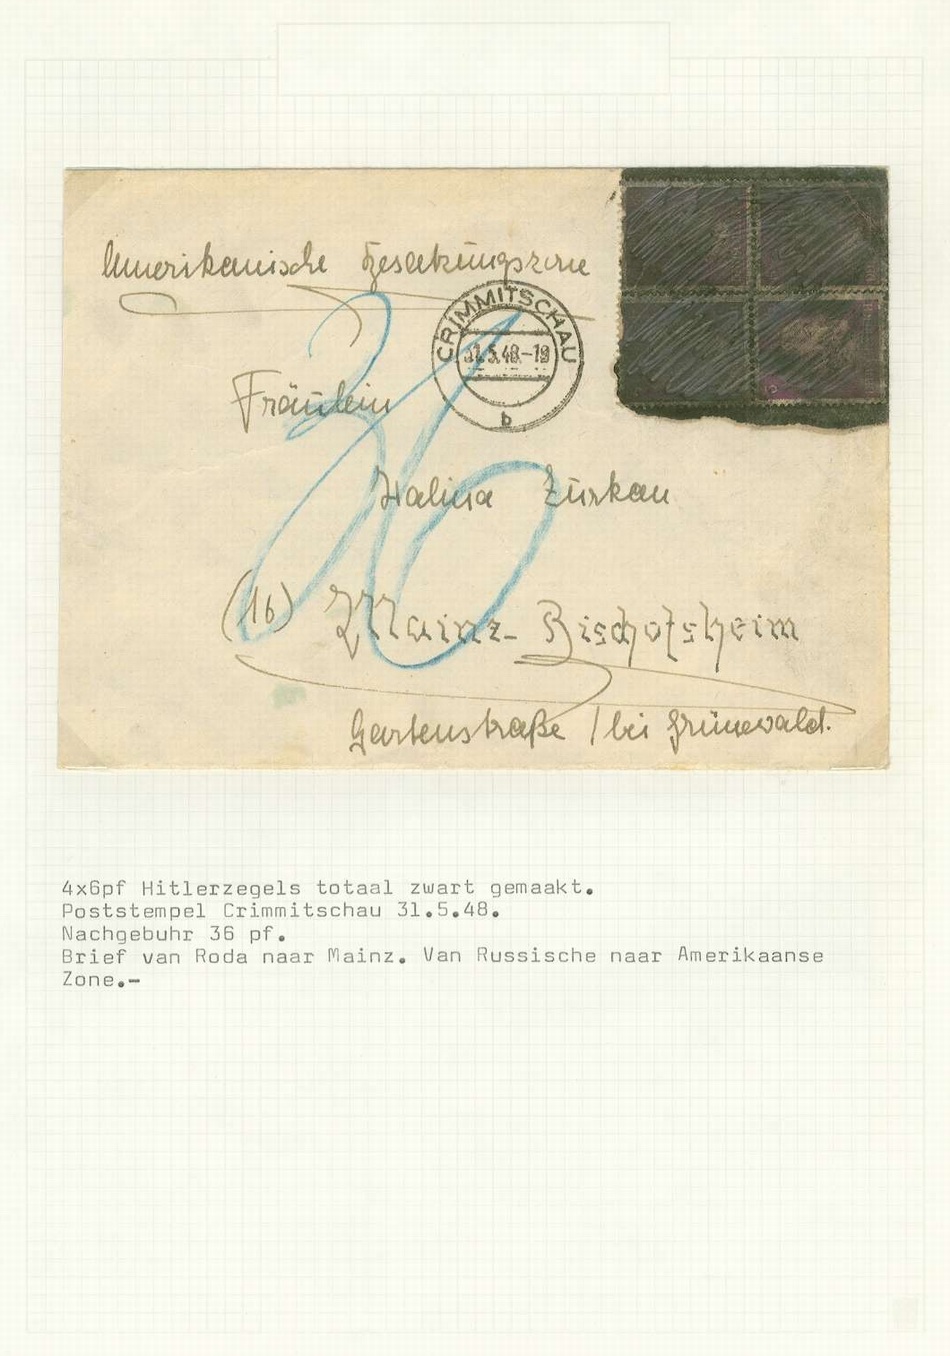 Amerikanische Besatzungszone
CRIMMITSCHAU
31.5.48.-19
b
36
Fräulein
Halina Zurkau
(16) Mainz-Bischofsheim
Gartenstraße / bei Grünewald.
4x6pf Hitlerzegels totaal zwart gemaakt.
Poststempel Crimmitschau 31.5.48.
Nachgebuhr 36 pf.
Brief van Roda naar Mainz. Van Russische naar Amerikaanse
Zone.-